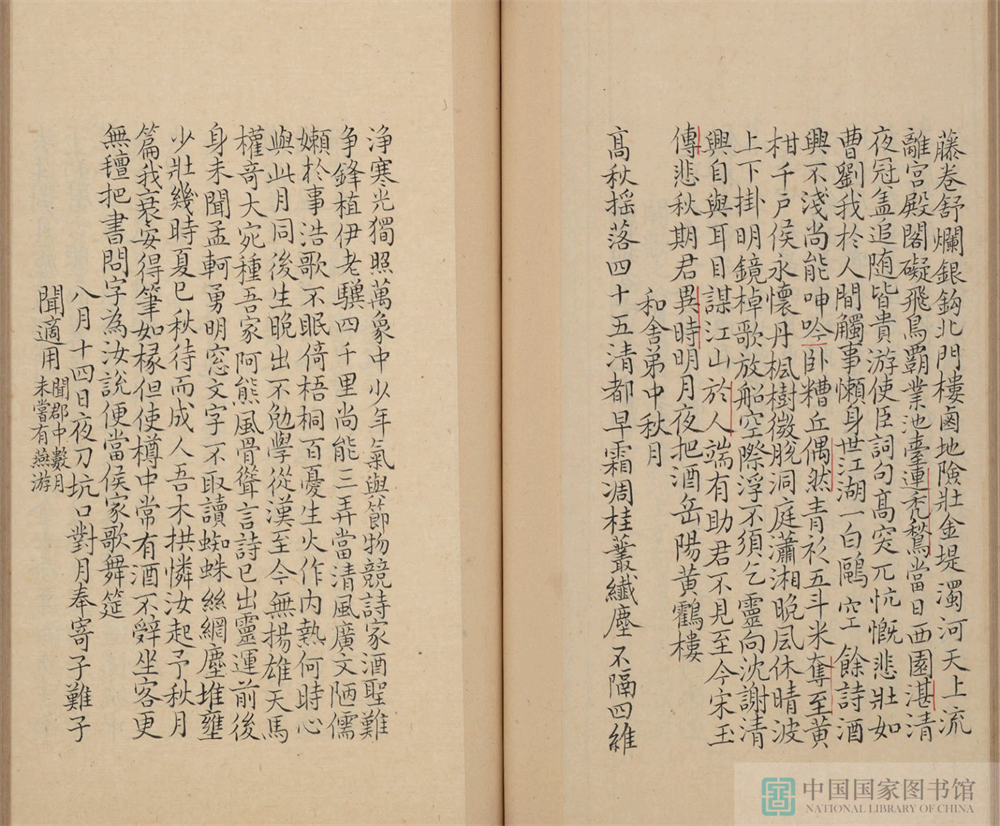 藤卷舒爛銀鈎北門樓鹵地險壯金堤濁河天上流
離宮殿閣礙飛鳥霸業池臺連禿鶖當日西園湛清
夜冠盖追随皆貴游使臣詞句高突兀忼慨悲壯如
曹劉我於人間觸事懶身世江湖一白鷗空餘詩酒
興不淺尚能呻吟卧糟丘偶然青衫五斗米奪至黄
柑千戸侯永懷丹楓樹微脫洞庭瀟湘晚風休晴波
上下掛明鏡棹歌放船空際浮不須乞靈向沈謝清
興自與耳目謀江山於人端有助君不見至今宋玉
傳悲秋期君異時明月夜把酒岳陽黄鶴樓
和舍弟中秋月
高秋摇落四十五清都早霜凋桂叢纖塵不隔四維
浄寒光獨照萬象中少年氣與節物競詩家酒聖難
争鋒植伊老驥四千里尚能三弄當清風廣文陋儒
嬾於事浩歌不眠倚梧桐百憂生火作内熱何時心
與此月同後生晚出不勉學從漢至今無楊雄天馬
權竒大宛種吾家阿熊風骨聳言詩已出靈運前後
身未聞孟軻勇明窓文字不取讀蜘蛛絲網塵堆壅
少壯幾時夏已秋待而成人吾木拱憐汝起予秋月
篇我衰安得筆如椽但使樽中常有酒不辭坐客更
無氊把書問字為汝說便當侯家歌舞筵
八月十四日夜刀坑口對月奉寄子難子
聞適用聞郡中數月
未嘗有燕游
中国国家图书馆
NATIONAL LIBRARY OF CHINA